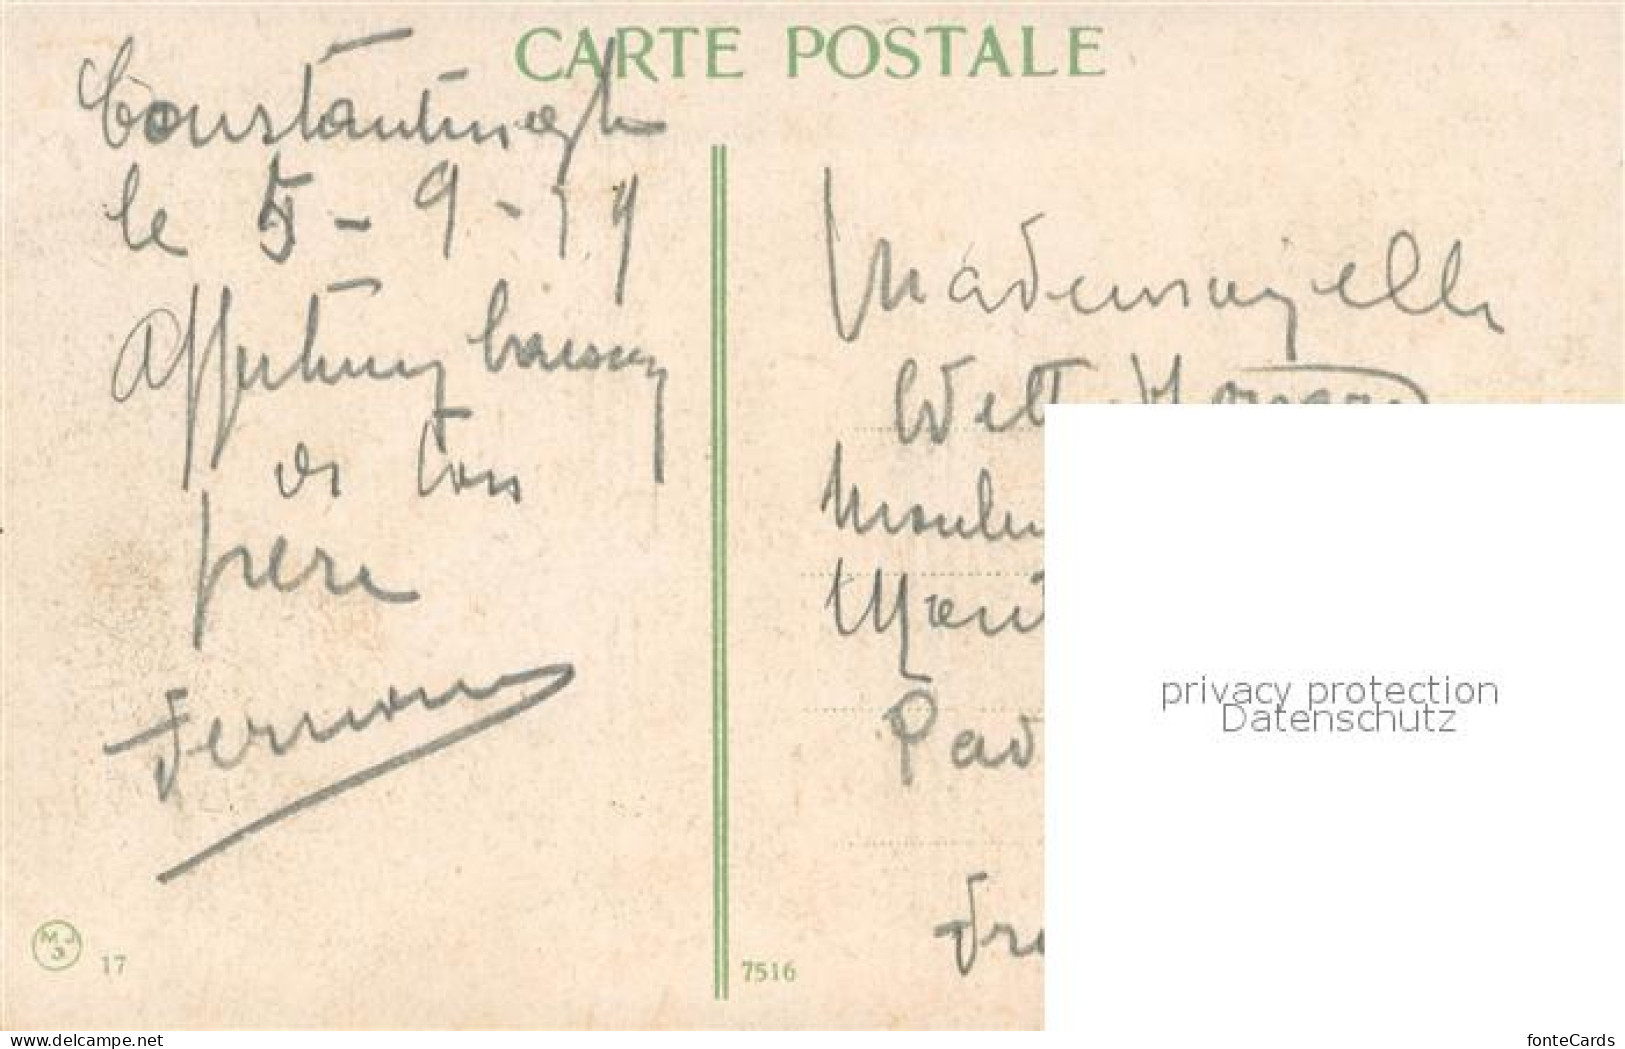 CARTE POSTALE
Constantinople
le 5-9-19
Affectueux baisers
de ton
père
Fernand
Mademoiselle
Moulin
Pad
Fra
MJ
3
17
7516
privacy protection
Datenschutz
www.delcampe.net
fonteCards